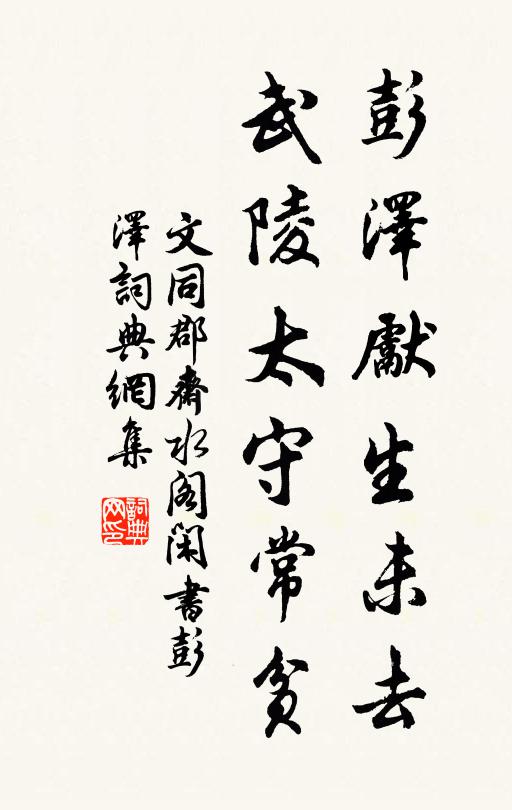 彭澤獻生未去
武陵太守常貧
文同郡齋水閣閑書彭
澤詞典網集
詞典
网印